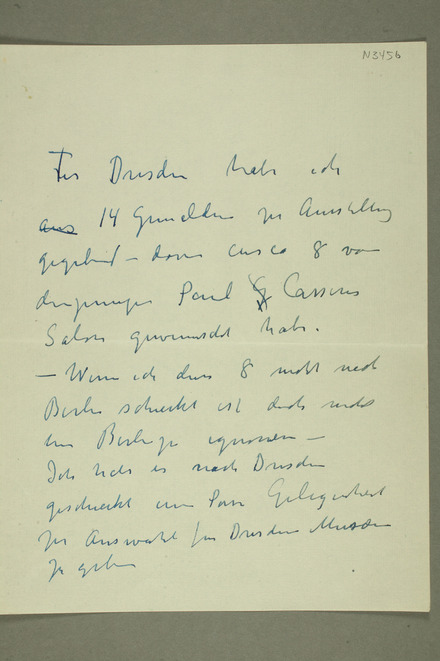 N3456
Für Dresden habe ich
aus 14 Gemälde zur Ausstellung
gegeben – davon circa 8 von
denjenigen Paul Cassirers
Salon gewünscht habe.
– Wenn ich diese 8 nicht nach
Berlin schickt ist doch nicht
um Berlin zu ignorieren –
Ich habe es nach Dresden
geschickt um Gelegenheit
zur Auswahl für Dresden Museum
zu geben